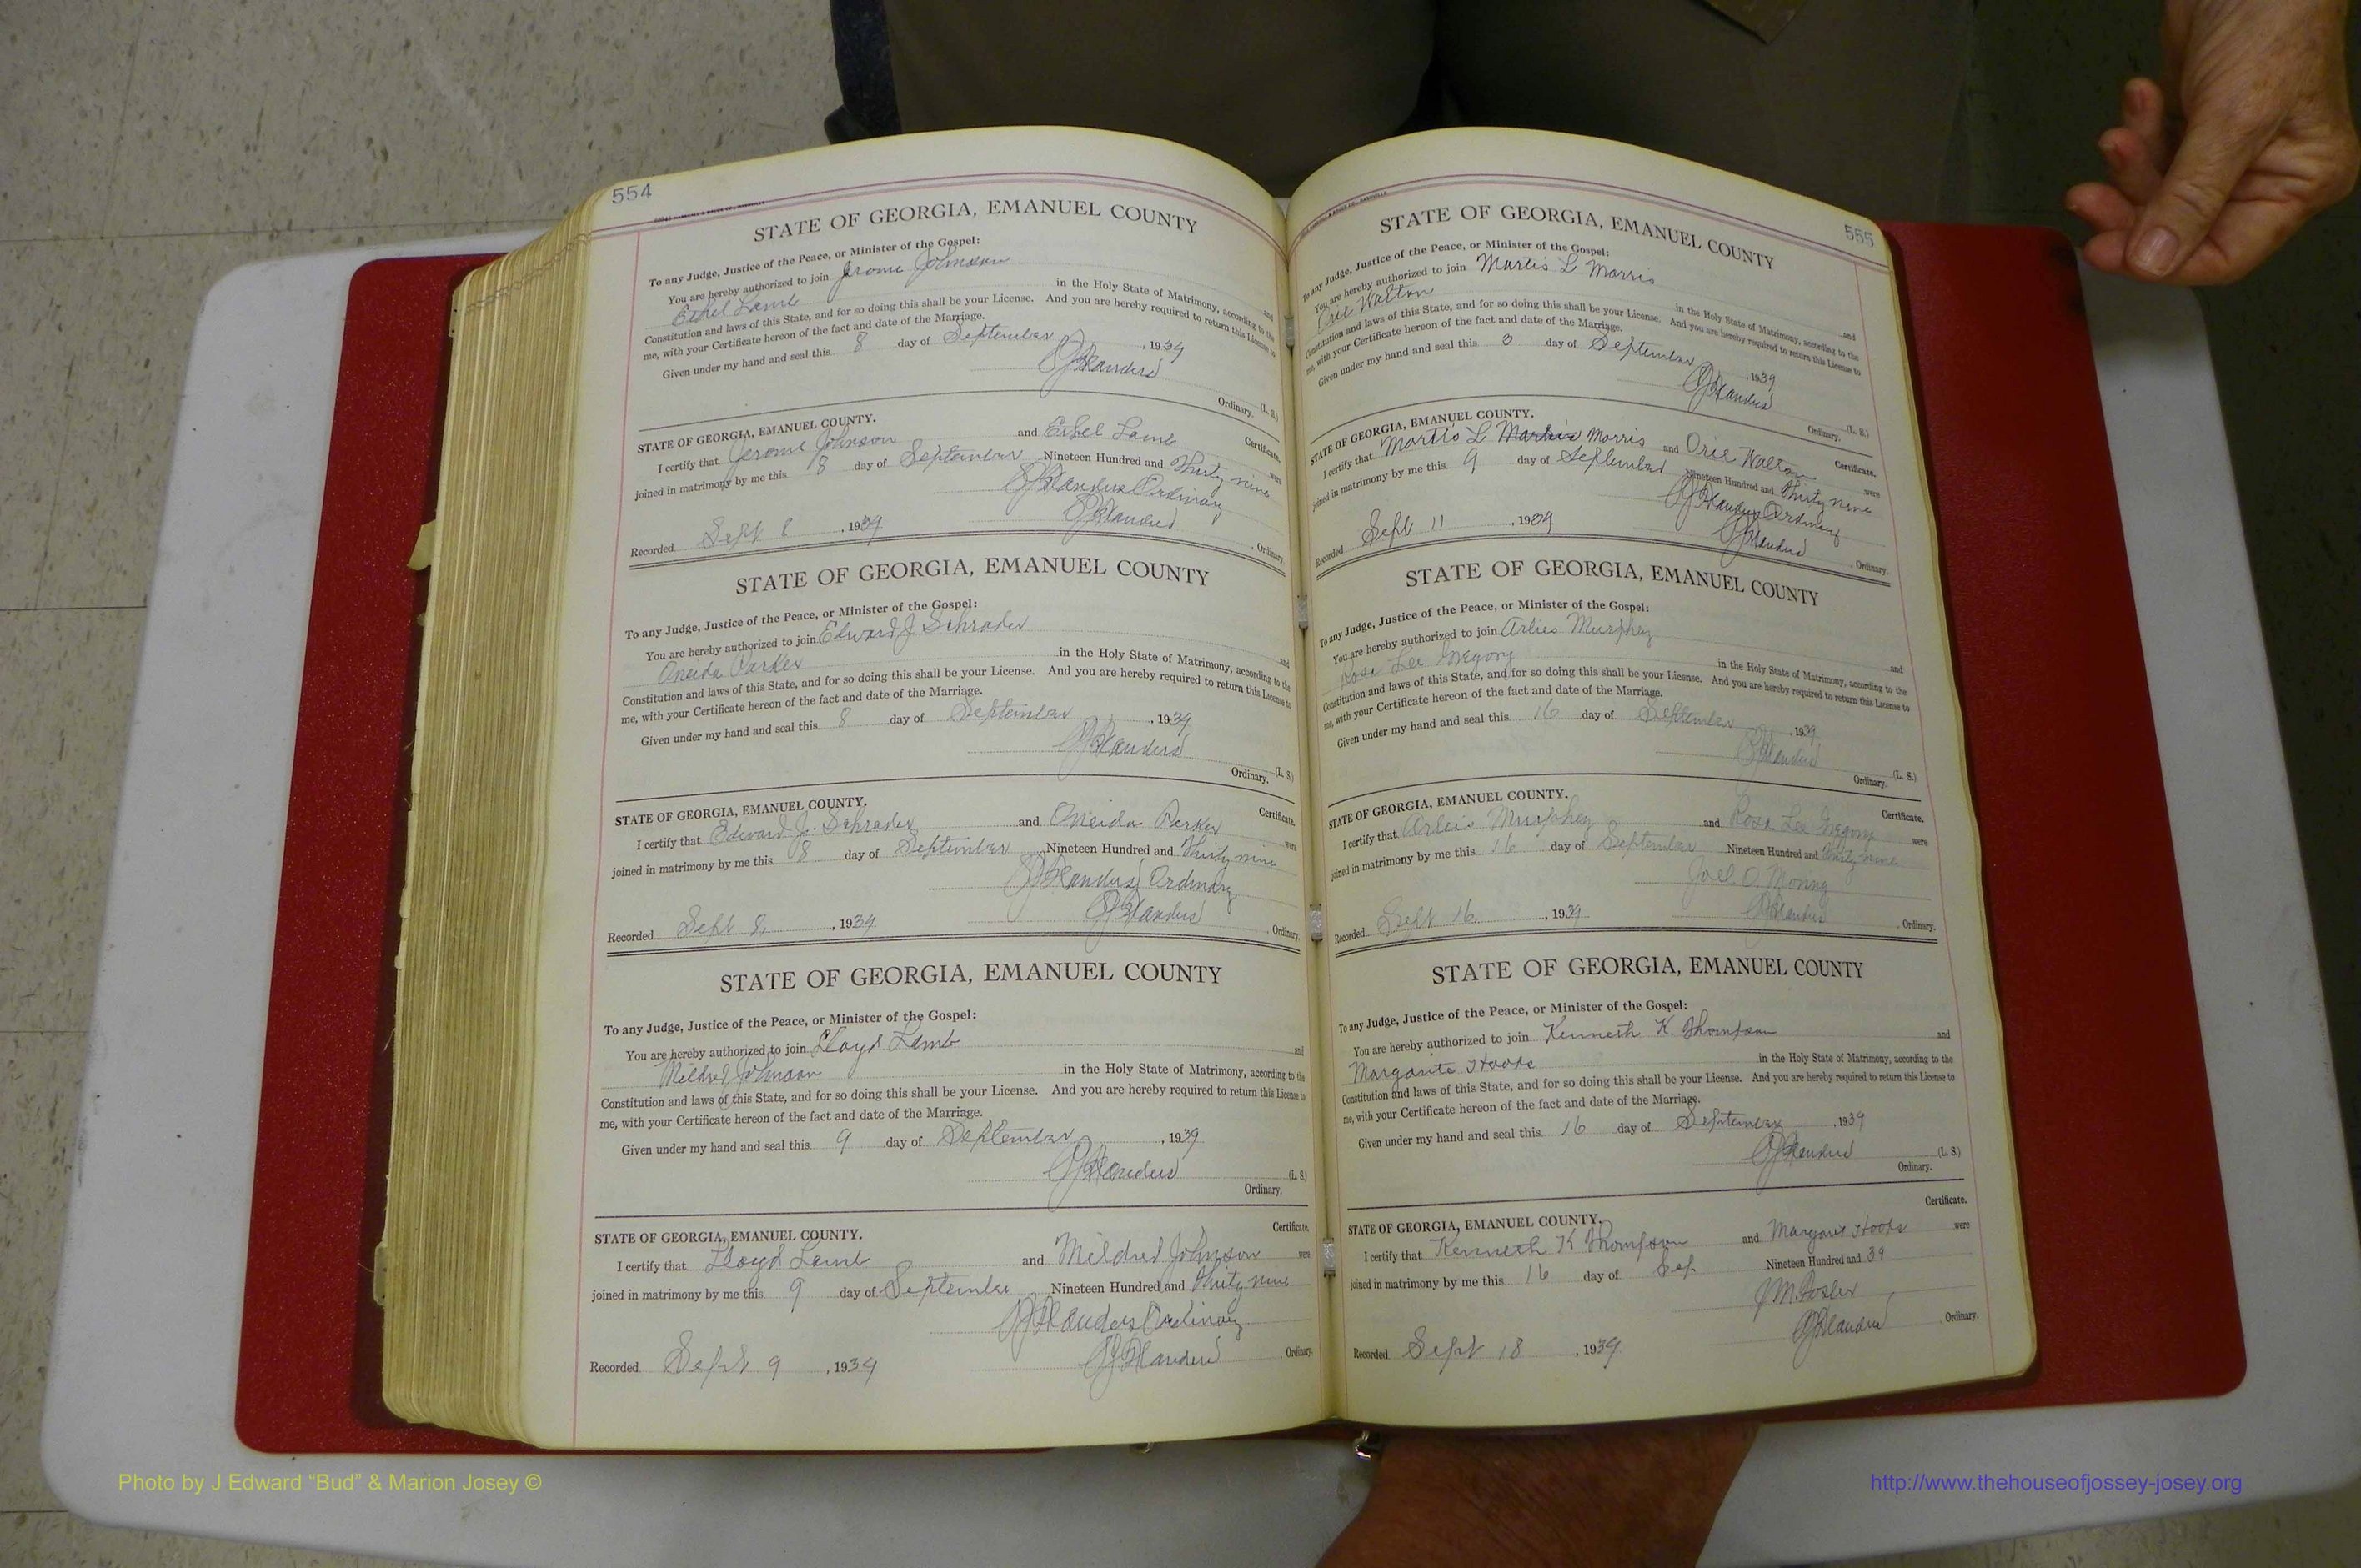 554
STATE OF GEORGIA, EMANUEL COUNTY
To any Judge, Justice of the Peace, or Minister of the Gospel:
You are hereby authorized to join Jerome Johnson and
Ethel Lamb in the Holy State of Matrimony, according to the
Constitution and laws of this State, and for so doing this shall be your License. And you are hereby required to return this License to
me, with your Certificate hereon of the fact and date of the Marriage.
Given under my hand and seal this 8 day of September, 1939
Flanders
Ordinary. (L. S.)
STATE OF GEORGIA, EMANUEL COUNTY. Certificate.
I certify that Jerome Johnson and Ethel Lamb were
joined in matrimony by me this 8 day of September Nineteen Hundred and Thirty nine
Flanders Ordinary
Flanders
Recorded Sept 8, 1939 Ordinary.
STATE OF GEORGIA, EMANUEL COUNTY
To any Judge, Justice of the Peace, or Minister of the Gospel:
You are hereby authorized to join Edward J Schrader and
Oneida Parker in the Holy State of Matrimony, according to the
Constitution and laws of this State, and for so doing this shall be your License. And you are hereby required to return this License to
me, with your Certificate hereon of the fact and date of the Marriage.
Given under my hand and seal this 8 day of September, 1939
Flanders
Ordinary. (L. S.)
STATE OF GEORGIA, EMANUEL COUNTY. Certificate.
I certify that Edward J. Schrader and Oneida Parker were
joined in matrimony by me this 8 day of September Nineteen Hundred and Thirty nine
Flanders Ordinary
Flanders
Recorded Sept 8, 1939 Ordinary.
STATE OF GEORGIA, EMANUEL COUNTY
To any Judge, Justice of the Peace, or Minister of the Gospel:
You are hereby authorized to join Lloyd Lamb and
Mildred Johnson in the Holy State of Matrimony, according to the
Constitution and laws of this State, and for so doing this shall be your License. And you are hereby required to return this License to
me, with your Certificate hereon of the fact and date of the Marriage.
Given under my hand and seal this 9 day of September, 1939
Flanders
(L. S.)
Ordinary.
STATE OF GEORGIA, EMANUEL COUNTY. Certificate.
I certify that Lloyd Lamb and Mildred Johnson were
joined in matrimony by me this 9 day of September Nineteen Hundred and Thirty nine
Flanders Ordinary
Flanders
Recorded Sept 9, 1939 Ordinary.
555
STATE OF GEORGIA, EMANUEL COUNTY
To any Judge, Justice of the Peace, or Minister of the Gospel:
You are hereby authorized to join Martis L Morris and
Orie Walton in the Holy State of Matrimony, according to the
Constitution and laws of this State, and for so doing this shall be your License. And you are hereby required to return this License to
me, with your Certificate hereon of the fact and date of the Marriage.
Given under my hand and seal this day of September, 1939
Flanders
Ordinary. (L. S.)
STATE OF GEORGIA, EMANUEL COUNTY. Certificate.
I certify that Martis L Morris and Orie Walton were
joined in matrimony by me this 9 day of September Nineteen Hundred and Thirty nine
Flanders Ordinary
Flanders
Recorded Sept 11, 1939 Ordinary.
STATE OF GEORGIA, EMANUEL COUNTY
To any Judge, Justice of the Peace, or Minister of the Gospel:
You are hereby authorized to join Arlies Murphey and
Rosa Lee Gregory in the Holy State of Matrimony, according to the
Constitution and laws of this State, and for so doing this shall be your License. And you are hereby required to return this License to
me, with your Certificate hereon of the fact and date of the Marriage.
Given under my hand and seal this 16 day of September, 1939
Flanders
Ordinary. (L. S.)
STATE OF GEORGIA, EMANUEL COUNTY. Certificate.
I certify that Arleis Murphey and Rosa Lee Gregory were
joined in matrimony by me this 16 day of September Nineteen Hundred and Thirty nine
Joel O.
Flanders
Recorded Sept 16, 1939 Ordinary.
STATE OF GEORGIA, EMANUEL COUNTY
To any Judge, Justice of the Peace, or Minister of the Gospel:
You are hereby authorized to join Kenneth K. Thompson and
Margarite Hooks in the Holy State of Matrimony, according to the
Constitution and laws of this State, and for so doing this shall be your License. And you are hereby required to return this License to
me, with your Certificate hereon of the fact and date of the Marriage.
Given under my hand and seal this 16 day of September, 1939
Flanders
(L. S.)
Ordinary.
STATE OF GEORGIA, EMANUEL COUNTY. Certificate.
I certify that Kenneth K Thompson and Margaret Hooks were
joined in matrimony by me this 16 day of Sep. Nineteen Hundred and 39
Flanders
Recorded Sept 18, 1939 Ordinary.
Photo by J Edward “Bud” & Marion Josey ©
http://www.thehouseofjossey-josey.org